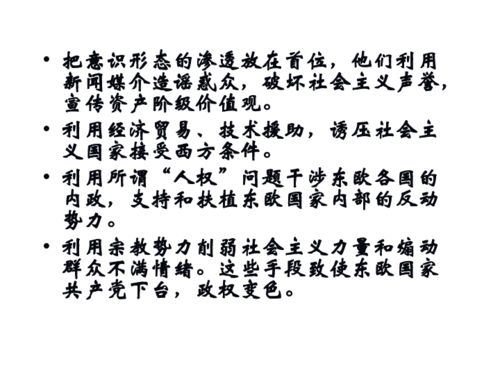 • 把意识形态的渗透放在首位，他们利用
新闻媒介造谣惑众，破坏社会主义声誉，
宣传资产阶级价值观。
• 利用经济贸易、技术援助，诱压社会主
义国家接受西方条件。
• 利用所谓“人权”问题干涉东欧各国的
内政，支持和扶植东欧国家内部的反动
势力。
• 利用宗教势力削弱社会主义力量和煽动
群众不满情绪。这些手段致使东欧国家
共产党下台，政权变色。